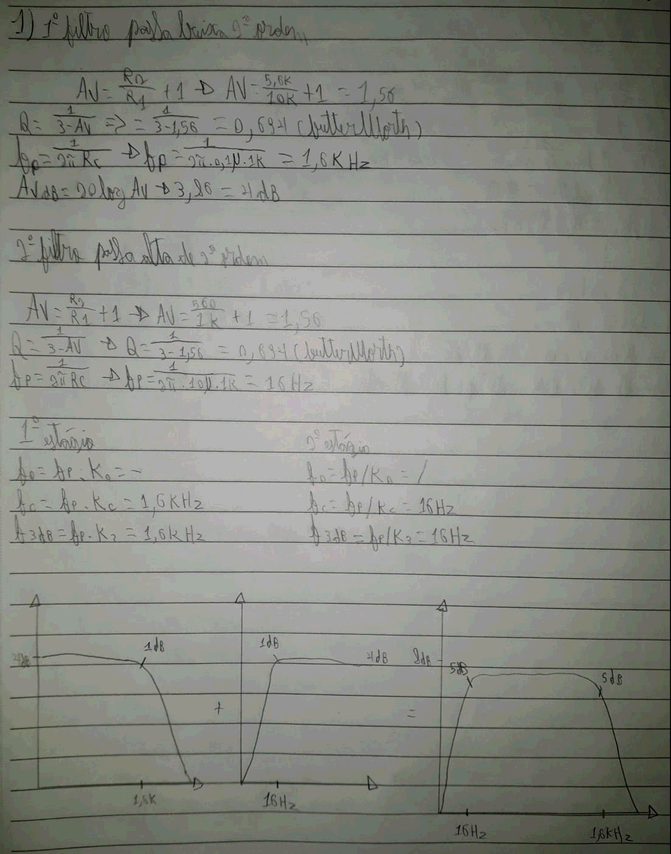 1) 1º filtro passa baixa 2ª ordem
AV = R2/R1 + 1 → AV = 5,6K/10K + 1 = 1,56
Q = 1/3-AV => = 1/3-1,56 = 0,694 (butterWorth)
fp = 1/2π RC → fp = 1/2π.0,1µ.1K = 1,6KHz
AVdB = 20 log AV → 3,86 = 4dB
2º filtro passa alta de 2ª ordem
AV = R2/R1 + 1 → AV = 560/1K + 1 = 1,56
Q = 1/3-AV → Q = 1/3-1,56 = 0,694 (butterWorth)
fp = 1/2π RC → fp = 1/2π.10µ.1K = 16Hz
1º estágio 2º estágio
f0 = fp.K0 = - f0 = fp/K0 = /
fc = fp.Kc = 1,6KHz fc = fp/Kc = 16Hz
f3dB = fp.K3 = 1,6KHz f3dB = fp/K3 = 16Hz
4dB 1dB 1dB 4dB 8dB 5dB 5dB
+ =
1,6K 16Hz 16Hz 1,6KHz